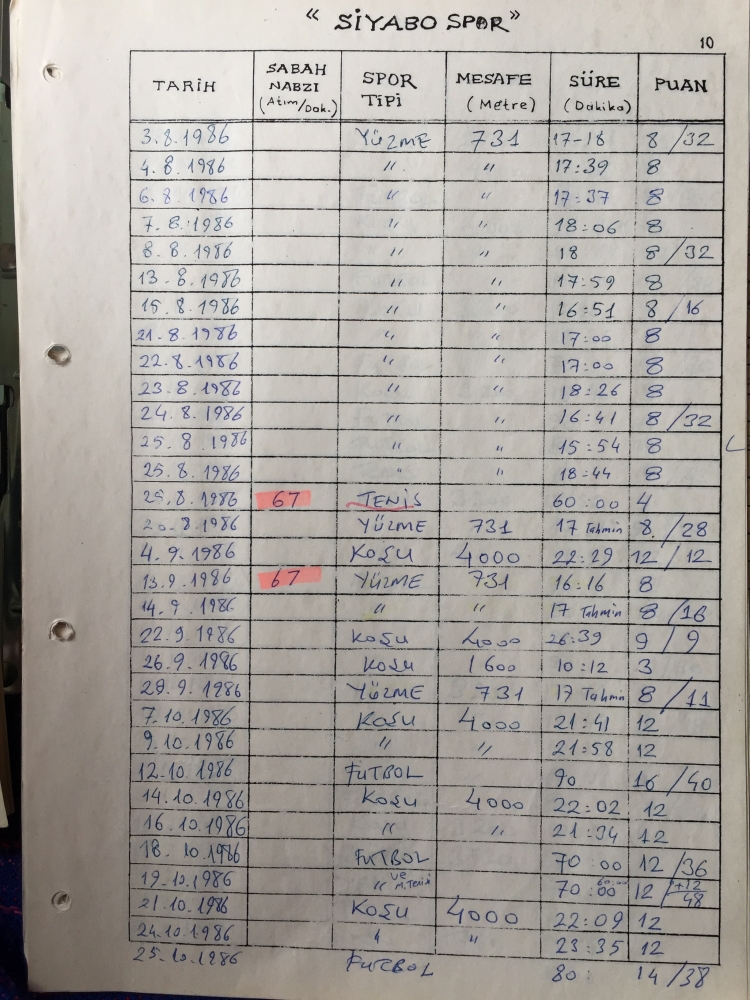 “ SİYABO SPOR ”
10
TARİH SABAH NABZI (Atım/Dak.) SPOR TİPİ MESAFE (Metre) SÜRE (Dakika) PUAN
3.8.1986 YÜZME 731 17-18 8 /32
4.8.1986 " " 17:39 8
6.8.1986 " " 17:37 8
7.8.1986 " " 18:06 8
8.8.1986 " " 18 8 /32
13.8.1986 " " 17:59 8
15.8.1986 " " 16:51 8 /16
21.8.1986 " " 17:00 8
22.8.1986 " " 17:00 8
23.8.1986 " " 18:26 8
24.8.1986 " " 16:41 8 /32
25.8.1986 " " 15:54 8
25.8.1986 " " 18:44 8
67 TENİS 60:00 4
YÜZME 731 17 Tahmin 8 /28
4.9.1986 KOŞU 4000 22:29 12 / 12
13.9.1986 67 YÜZME 731 16:16 8
14.9.1986 " " 17 Tahmin 8 /16
22.9.1986 KOŞU 4000 26:39 9 / 9
26.9.1986 KOŞU 1600 10:12 3
YÜZME 731 17 Tahmin 8 /11
7.10.1986 KOŞU 4000 21:41 12
9.10.1986 " " 21:58 12
12.10.1986 FUTBOL 90 16 /40
14.10.1986 KOŞU 4000 22:02 12
16.10.1986 " " 21:34 12
18.10.1986 FUTBOL 70:00 12 /36
19.10.1986 " ve M.Tenis 70:00 60:00 12 / +12 48
21.10.1986 KOŞU 4000 22:09 12
24.10.1986 " " 23:35 12
25.10.1986 FUTBOL 80: 14 /38